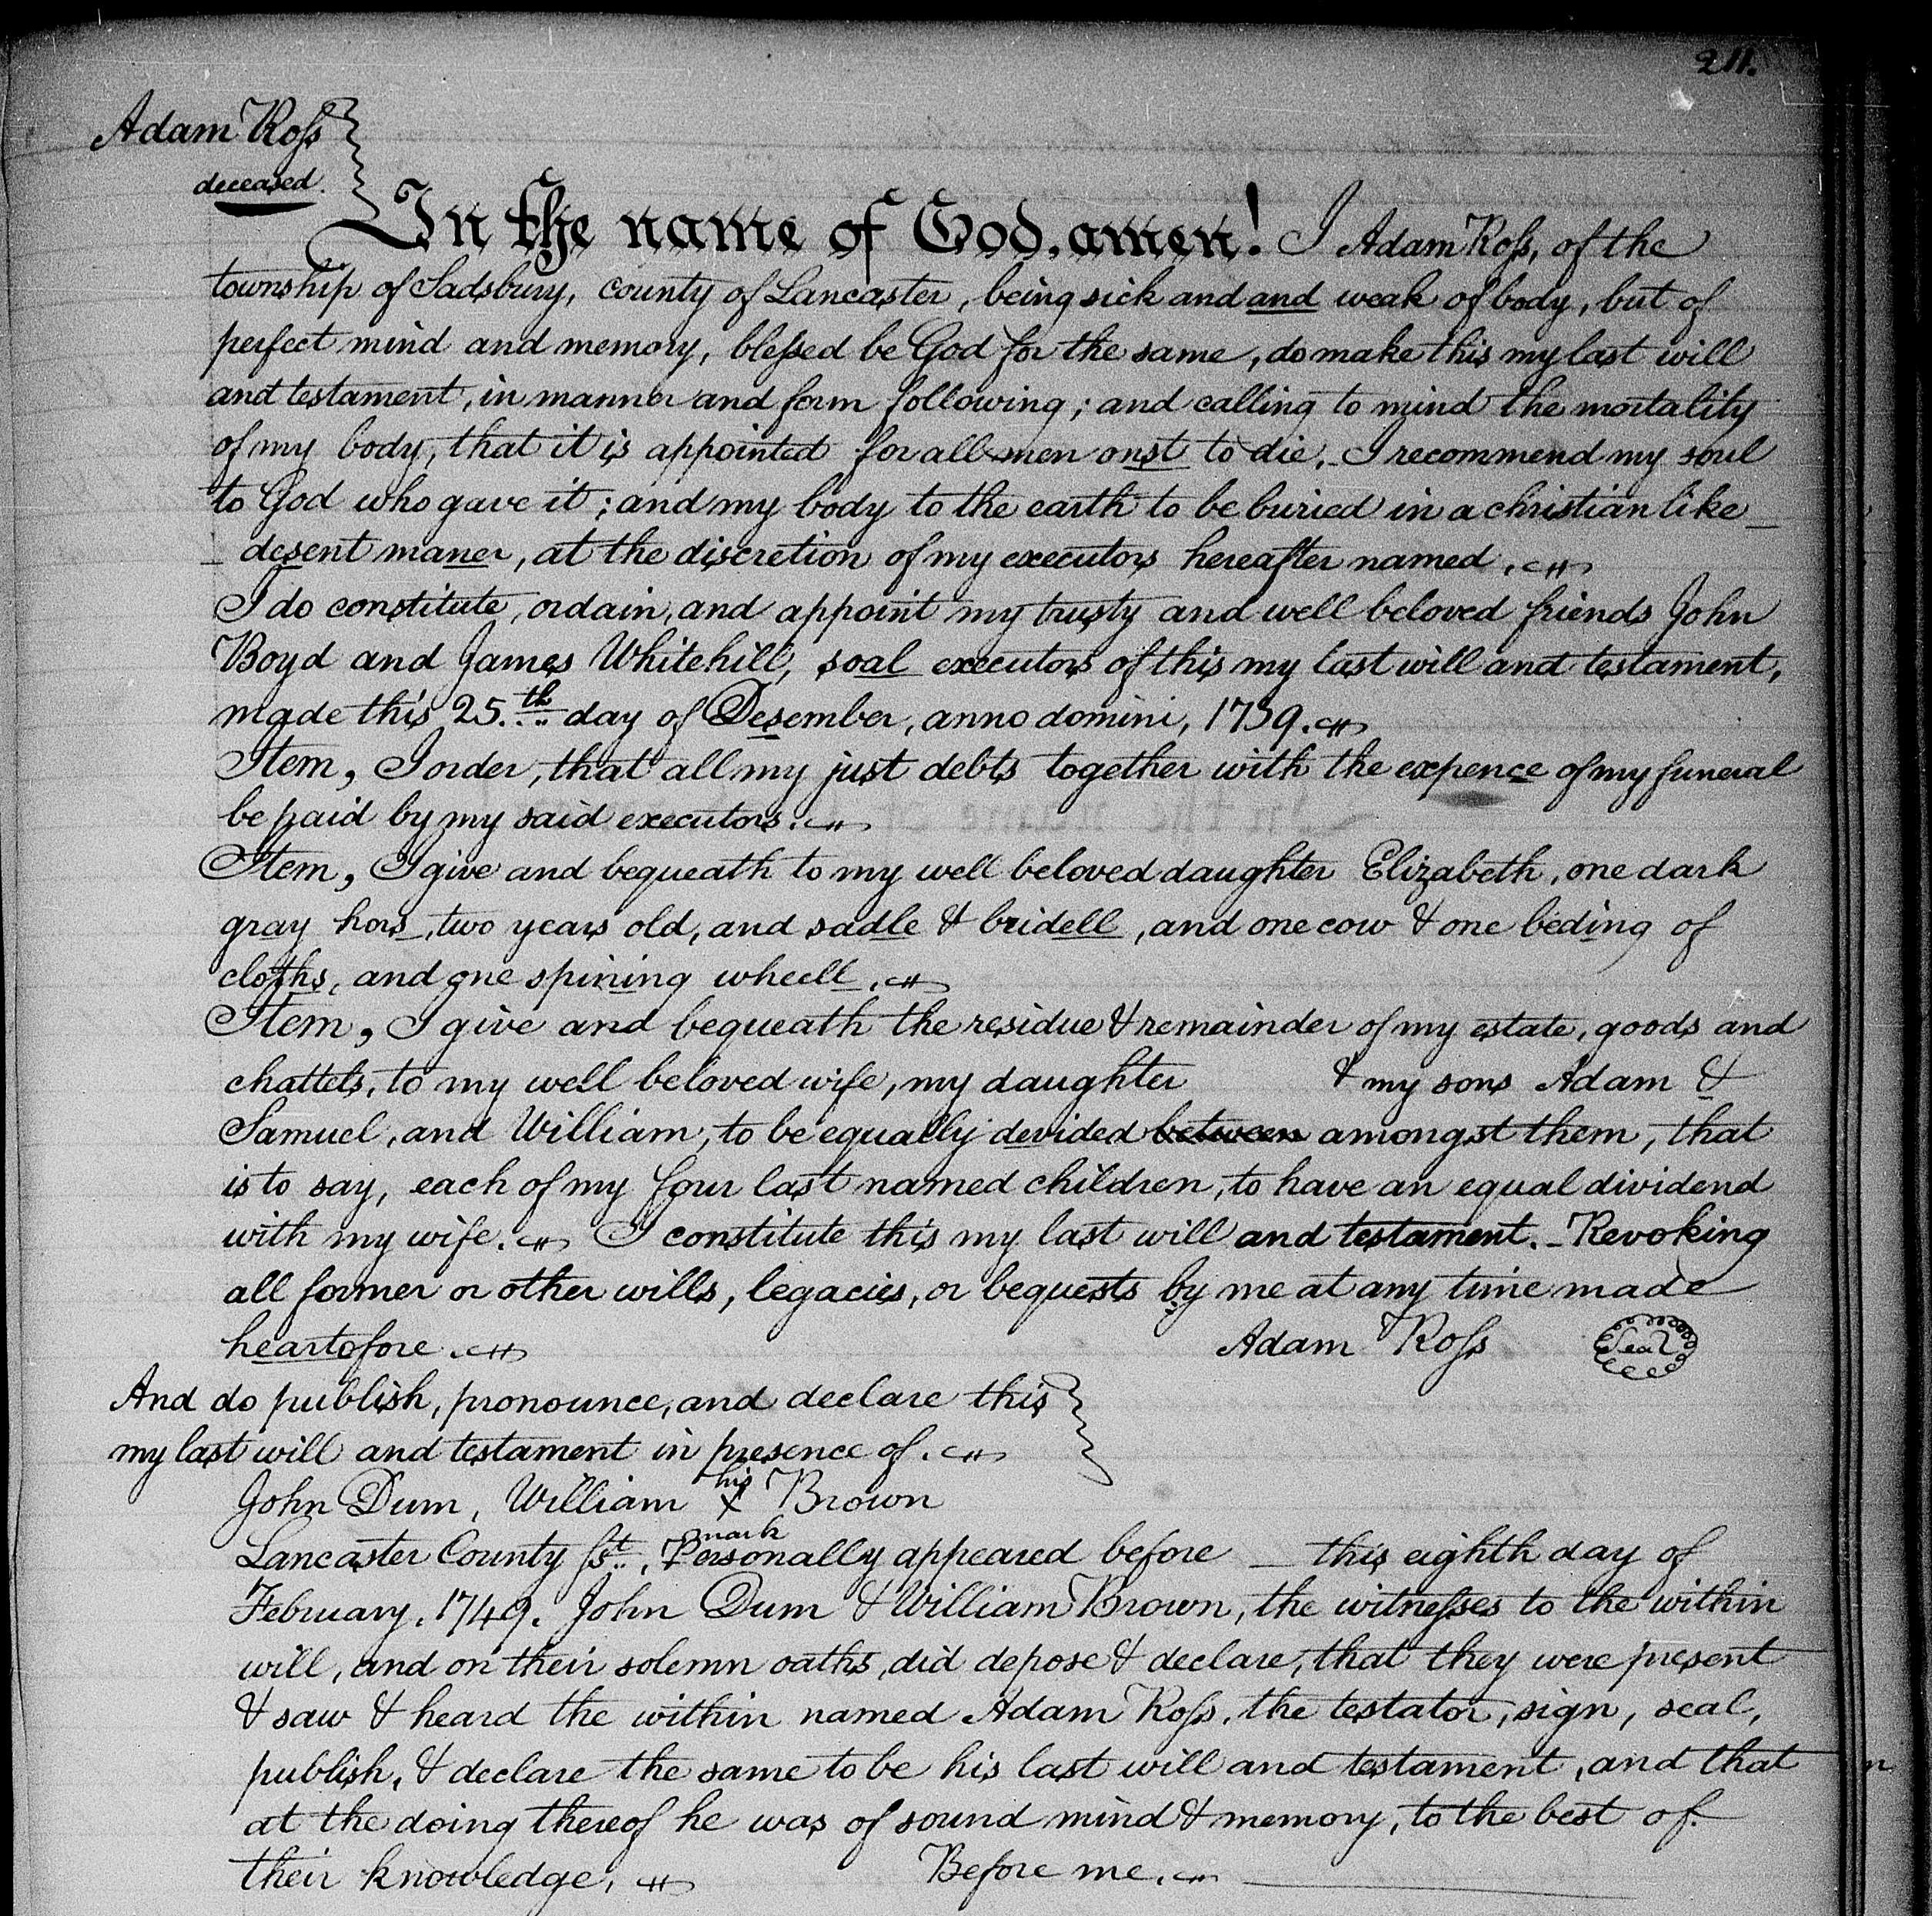 211.
Adam Ross
deceased.
In the name of God, amen! I Adam Ross, of the
township of Sadsbury, county of Lancaster, being sick and and weak of body, but of
perfect mind and memory, blessed be God for the same, do make this my last will
and testament, in manner and form following; and calling to mind the mortality
of my body, that it is appointed for all men onst to die. I recommend my soul
to God who gave it; and my body to the earth to be buried in a christian like
desent maner, at the discretion of my executors hereafter named.
I do constitute, ordain, and appoint my trusty and well beloved friends John
Boyd and James Whitehill, soal executors of this my last will and testament,
made this 25.th day of Desember, anno domini, 1739.
Item, I order, that all my just debts together with the expence of my funeral
be paid by my said executors.
Item, I give and bequeath to my well beloved daughter Elizabeth, one dark
gray hors, two years old, and sadle & bridell, and one cow & one beding of
cloths, and one spining wheell.
Item, I give and bequeath the residue & remainder of my estate, goods and
chattels, to my well beloved wife, my daughter & my sons Adam &
Samuel, and William, to be equally devided between amongst them, that
is to say, each of my four last named children, to have an equal dividend
with my wife. I constitute this my last will and testament. Revoking
all former or other wills, legacies, or bequests by me at any time made
heartofore. Adam Ross Seal
And do publish, pronounce, and declare this
my last will and testament in presence of.
John Dum, William his x mark Brown
Lancaster County sst. Personally appeared before _ this eighth day of
February, 1749. John Dum & William Brown, the witnesses to the within
will, and on their solemn oaths, did depose & declare, that they were present
& saw & heard the within named Adam Ross, the testator, sign, seal,
publish, & declare the same to be his last will and testament, and that
at the doing thereof he was of sound mind & memory, to the best of
their knowledge. Before me.